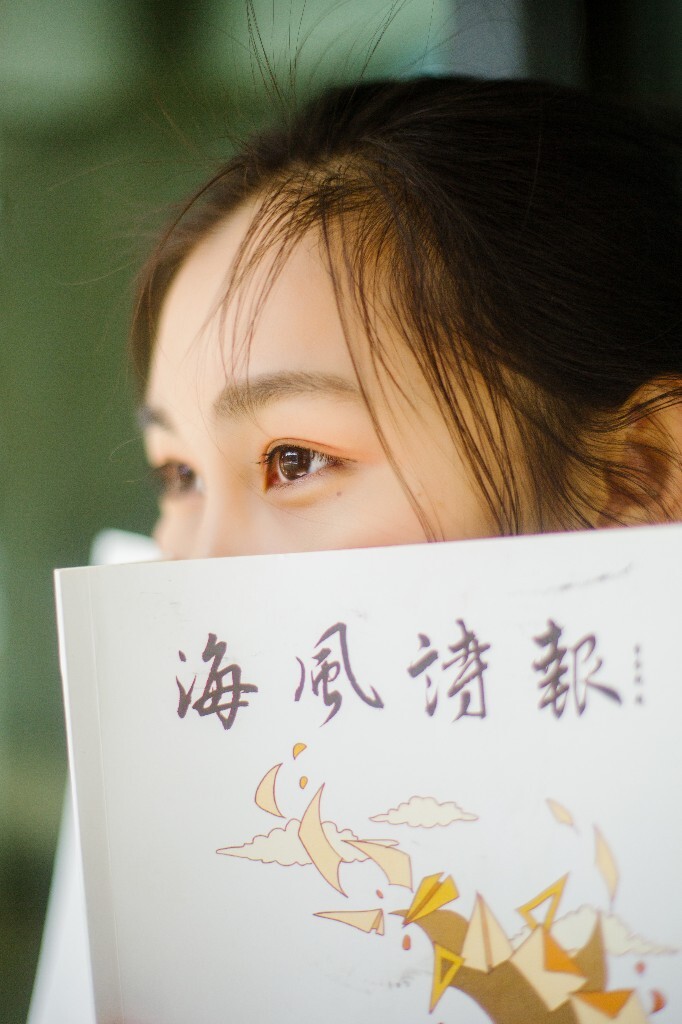 海風詩報